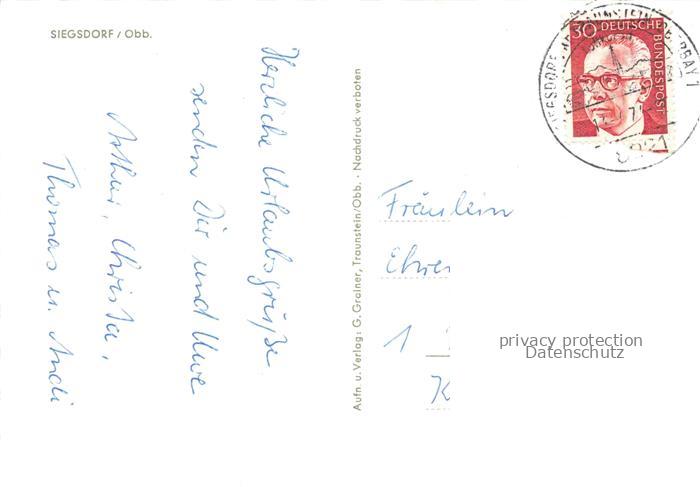 SIEGSDORF / Obb.
Herzliche Urlaubsgrüße
senden Dir und Uwe
Arthur, Christa,
Thomas u. Andi
Aufn. u. Verlag: G. Grainer, Traunstein/Obb. · Nachdruck verboten
30 DEUTSCHE BUNDESPOST
SIEGSDORF
8221
Fräulein
1
K
privacy protection
Datenschutz